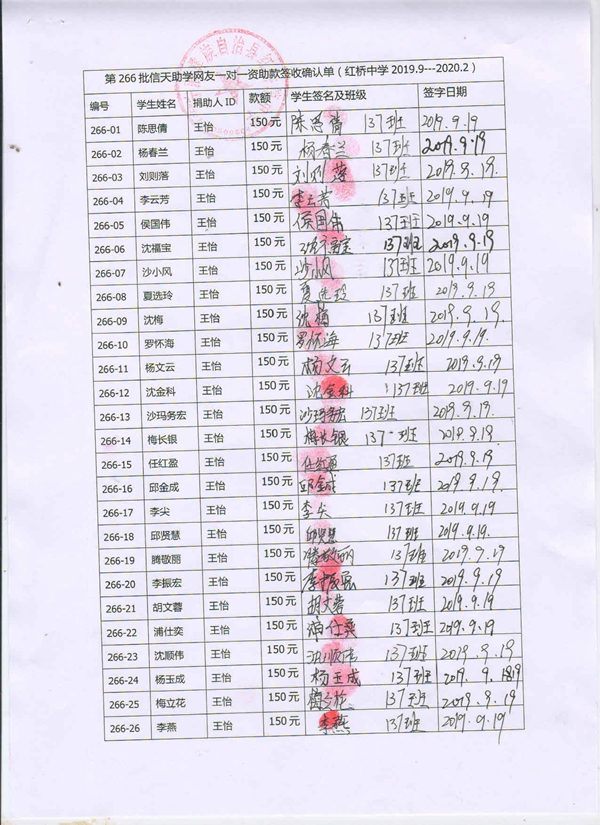 族自治县红
第 266 批信天助学网友一对一资助款签收确认单（红桥中学 2019.9---2020.2）
编号 学生姓名 捐助人 ID 款额 学生签名及班级 签字日期
266-01 陈思倩 王怡 150 元 陈思倩 137班 2019.9.19
266-02 杨春兰 王怡 150 元 杨春兰 137班 2019.9.19
266-03 刘则落 王怡 150 元 刘则落 137班 2019.9.19.
266-04 李云芳 王怡 150 元 李云芳 137班 2019.9.19
266-05 侯国伟 王怡 150 元 侯国伟 137班 2019.9.19
266-06 沈福宝 王怡 150 元 沈福宝 137班 2019.9.19
266-07 沙小风 王怡 150 元 沙小风 137班 2019.9.19
266-08 夏选玲 王怡 150 元 夏选玲 137班 2019.9.19
266-09 沈梅 王怡 150 元 沈梅 137班 2019.9.19.
266-10 罗怀海 王怡 150 元 罗怀海 137班 2019.9.19.
266-11 杨文云 王怡 150 元 杨文云 137班 2019.9.19
266-12 沈金科 王怡 150 元 沈金科 137班 2019.9.19
266-13 沙玛务宏 王怡 150 元 沙玛务宏 137班 2019.9.19.
266-14 梅长银 王怡 150 元 梅长银 137班 2019.9.19
266-15 任红盈 王怡 150 元 任红盈 137班 2019.9.19
266-16 邱金成 王怡 150 元 邱金成 137班 2019.9.19
266-17 李尖 王怡 150 元 李尖 137班 2019.9.19
266-18 邱贤慧 王怡 150 元 邱贤慧 137班 2019.9.19.
266-19 腾敬丽 王怡 150 元 腾敬丽 137班 2019.9.19
266-20 李振宏 王怡 150 元 137班 2019.9.19
266-21 胡文蓉 王怡 150 元 胡文蓉 137班 2019.9.19
266-22 浦仕奕 王怡 150 元 浦仕奕 137班 2019.9.19
266-23 沈顺伟 王怡 150 元 沈顺伟 137班 2019.9.19
266-24 杨玉成 王怡 150 元 杨玉成 137班 2019.9.19
266-25 梅立花 王怡 150 元 137班 2019.9.19
266-26 李燕 王怡 150 元 李燕 137班 2019.9.19